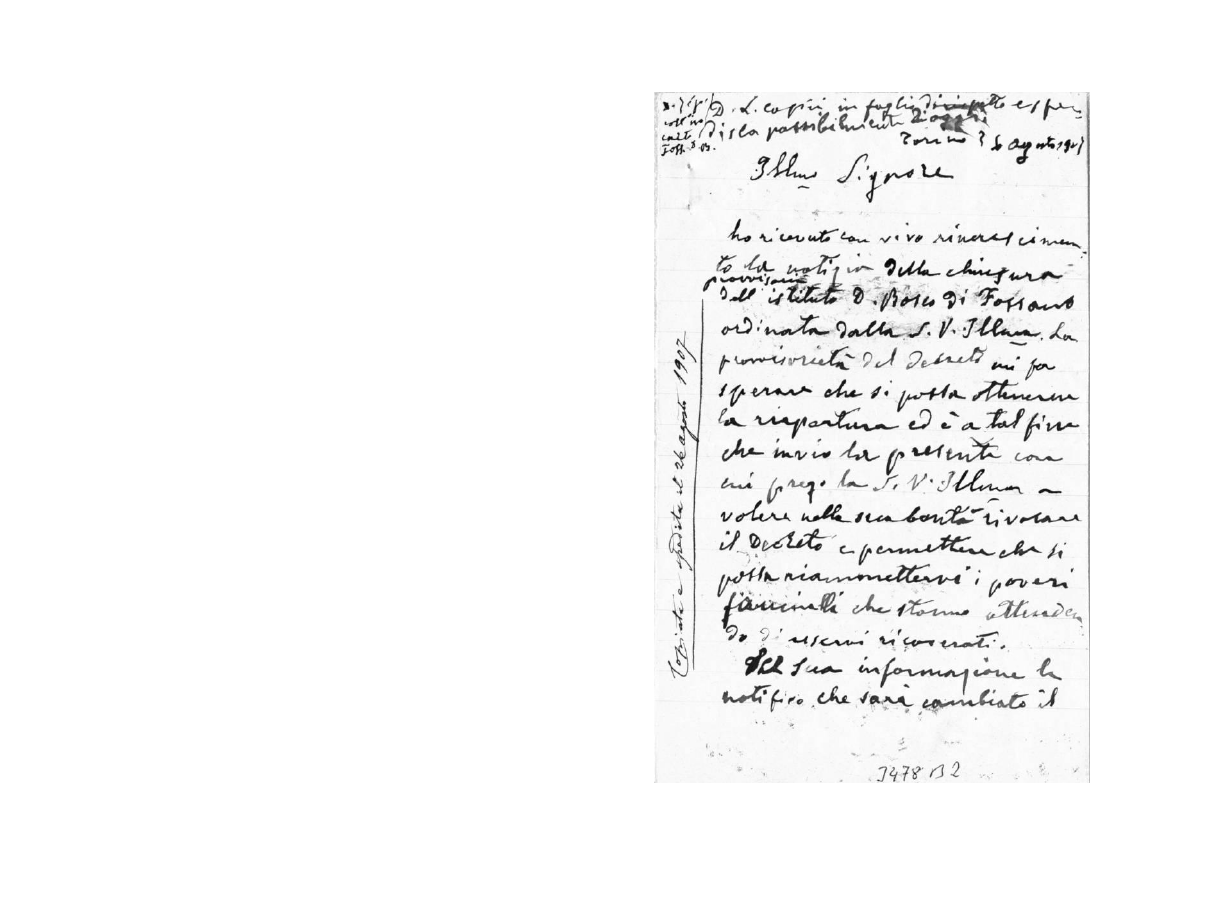 D. L. copii in foglio e spe-
disca possibilmente
Torino agosto 1907
Illmo Signore
ho ricevuto con vivo rincrescimen-
to la notizia della chiusura
provvisoria
dell'istituto D. Bosco di Fossano
ordinata dalla S. V. Illma. La
provvisorietà del decreto mi fa
sperare che si possa ottenerne
la riapertura ed è a tal fine
che invio la presente con
cui prego la S. V. Illma a
volere nella sua bontà rivocare
il Decreto e permettere che si
possa riammettervi i poveri
fanciulli che stanno attenden
do di esservi ricoverati.
sua informazione le
notifico che sarà cambiato il
Copiata e spedita il 26 agosto 1907
3478 B 2